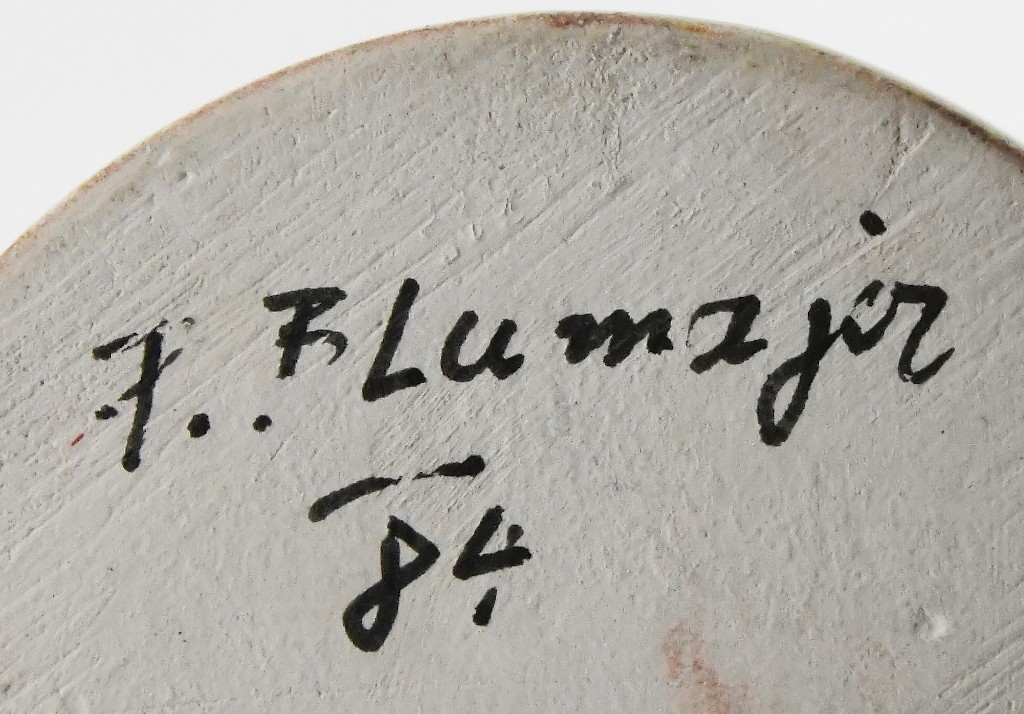 F.. Blumajer
84